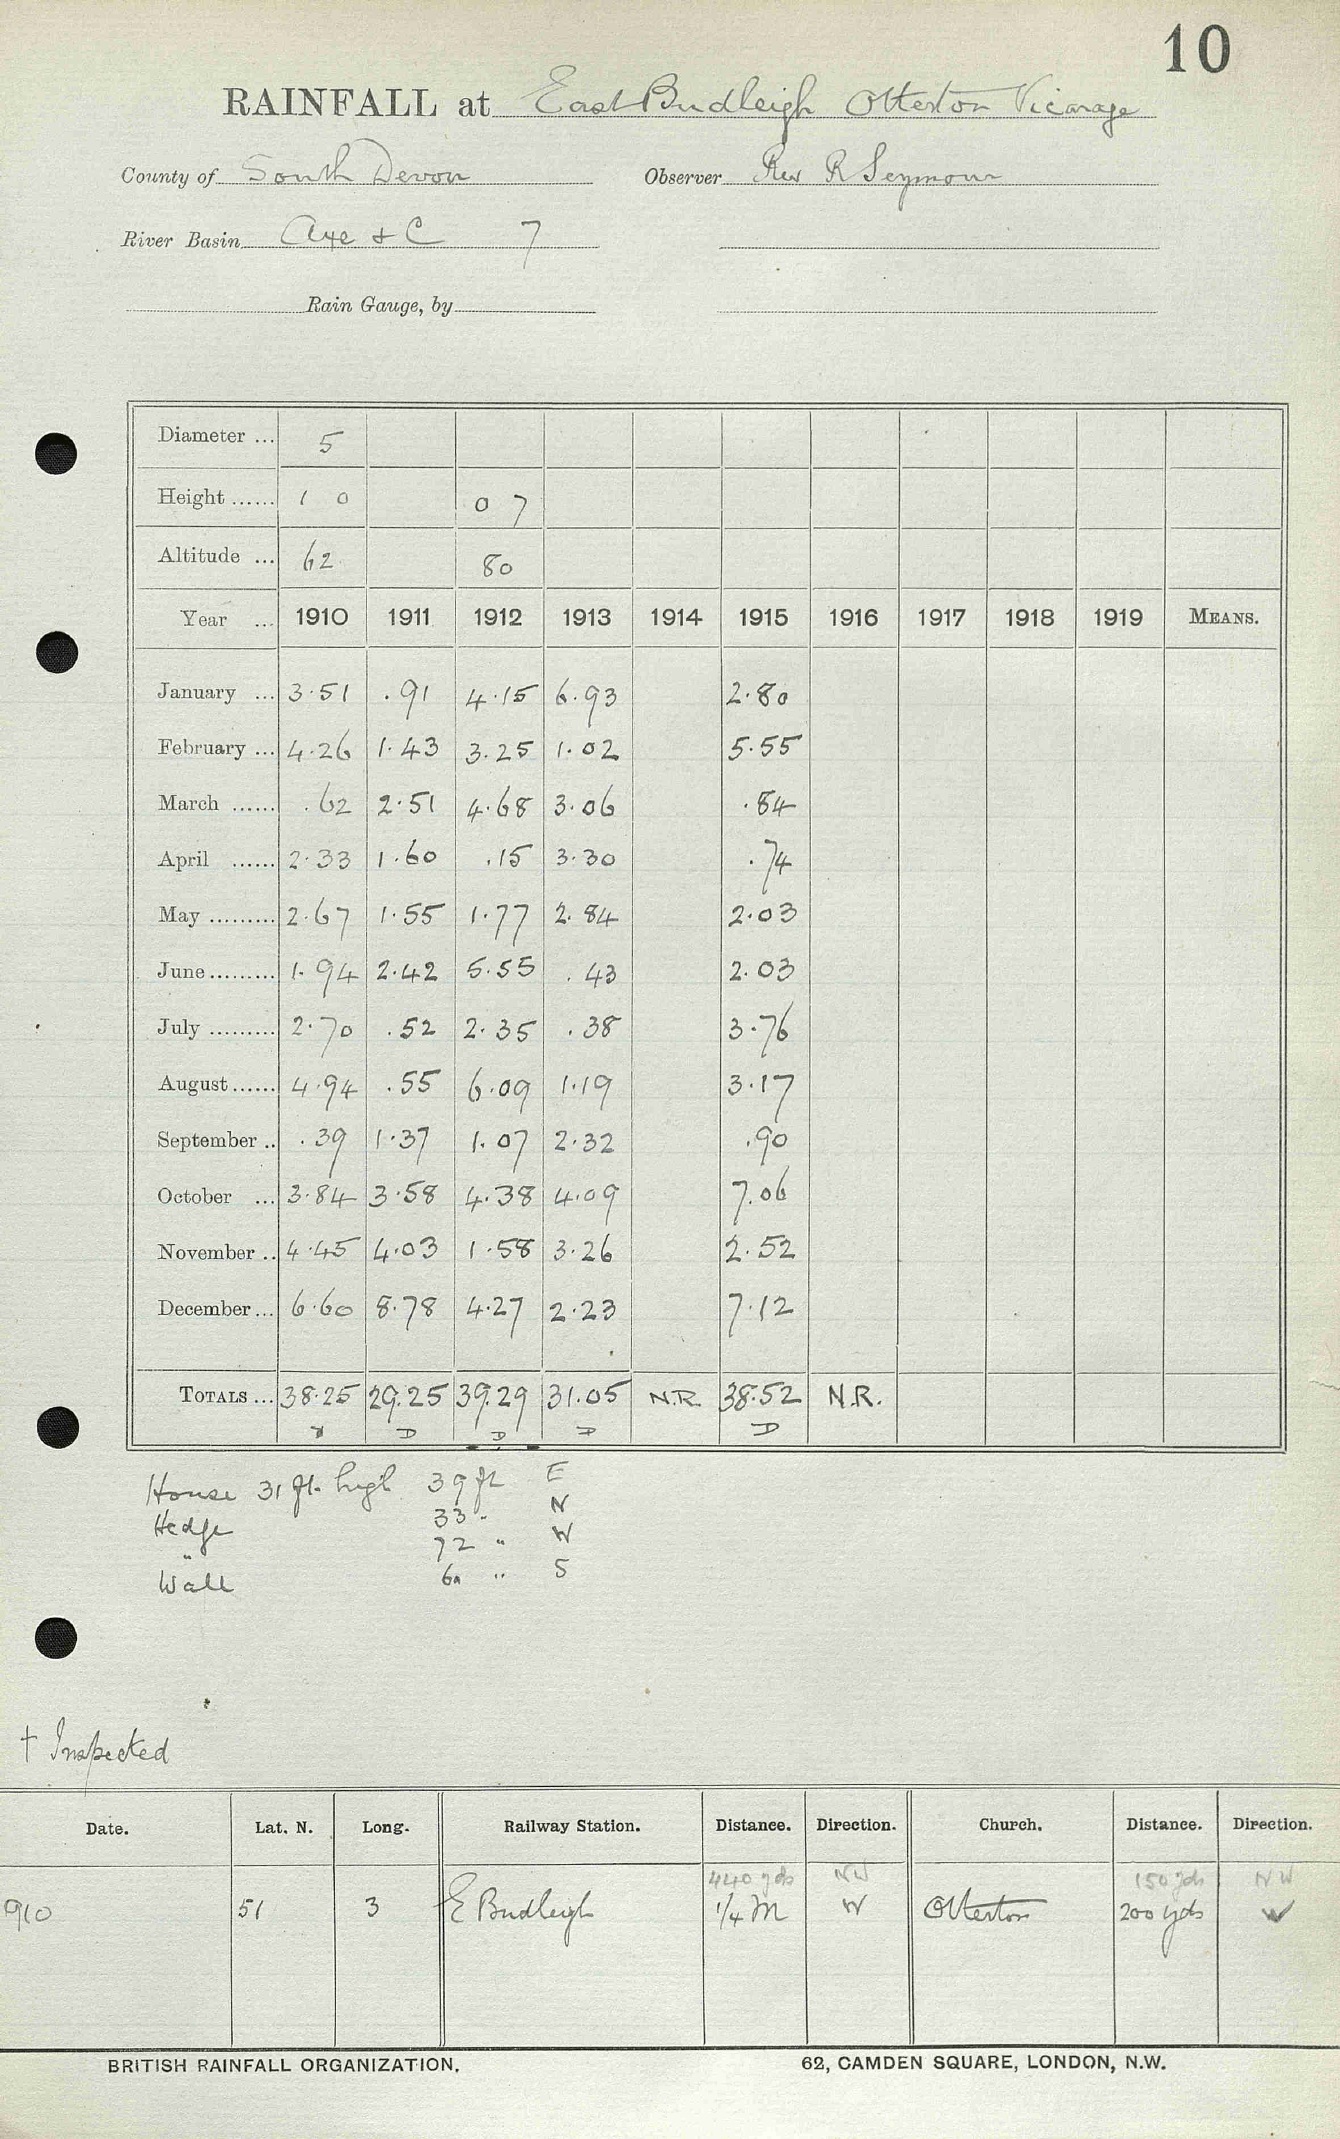 10
RAINFALL at East Budleigh Otterton Vicarage
County of South Devon Observer Rev R Seymour
River Basin Axe & C 7
Rain Gauge, by
Diameter ... 5
Height ...... 1 0 0 7
Altitude ... 62 80
Year ... 1910 1911 1912 1913 1914 1915 1916 1917 1918 1919 MEANS.
January ... 3.51 .91 4.15 6.93 2.80
February ... 4.26 1.43 3.25 1.02 5.55
March ...... .62 2.51 4.68 3.06 .84
April ...... 2.33 1.60 .15 3.30 .74
May ......... 2.67 1.55 1.77 2.84 2.03
June ......... 1.94 2.42 5.55 .43 2.03
July ......... 2.70 .52 2.35 .38 3.76
August ...... 4.94 .55 6.09 1.19 3.17
September .. .39 1.37 1.07 2.32 .90
October ... 3.84 3.58 4.38 4.09 7.06
November .. 4.45 4.03 1.58 3.26 2.52
December ... 6.60 8.78 4.27 2.23 7.12
TOTALS ... 38.25 29.25 39.29 31.05 N.R. 38.52 N.R.
D D D D
House 31 ft. high 39 ft E
Hedge 33 " N
" 72 " W
Wall " S
† Inspected
Date. Lat. N. Long. Railway Station. Distance. Direction. Church. Distance. Direction.
440 yds NW 150 yds NW
910 51 3 E Budleigh 1/4 M W Otterton 200 yds W
BRITISH RAINFALL ORGANIZATION. 62, CAMDEN SQUARE, LONDON, N.W.